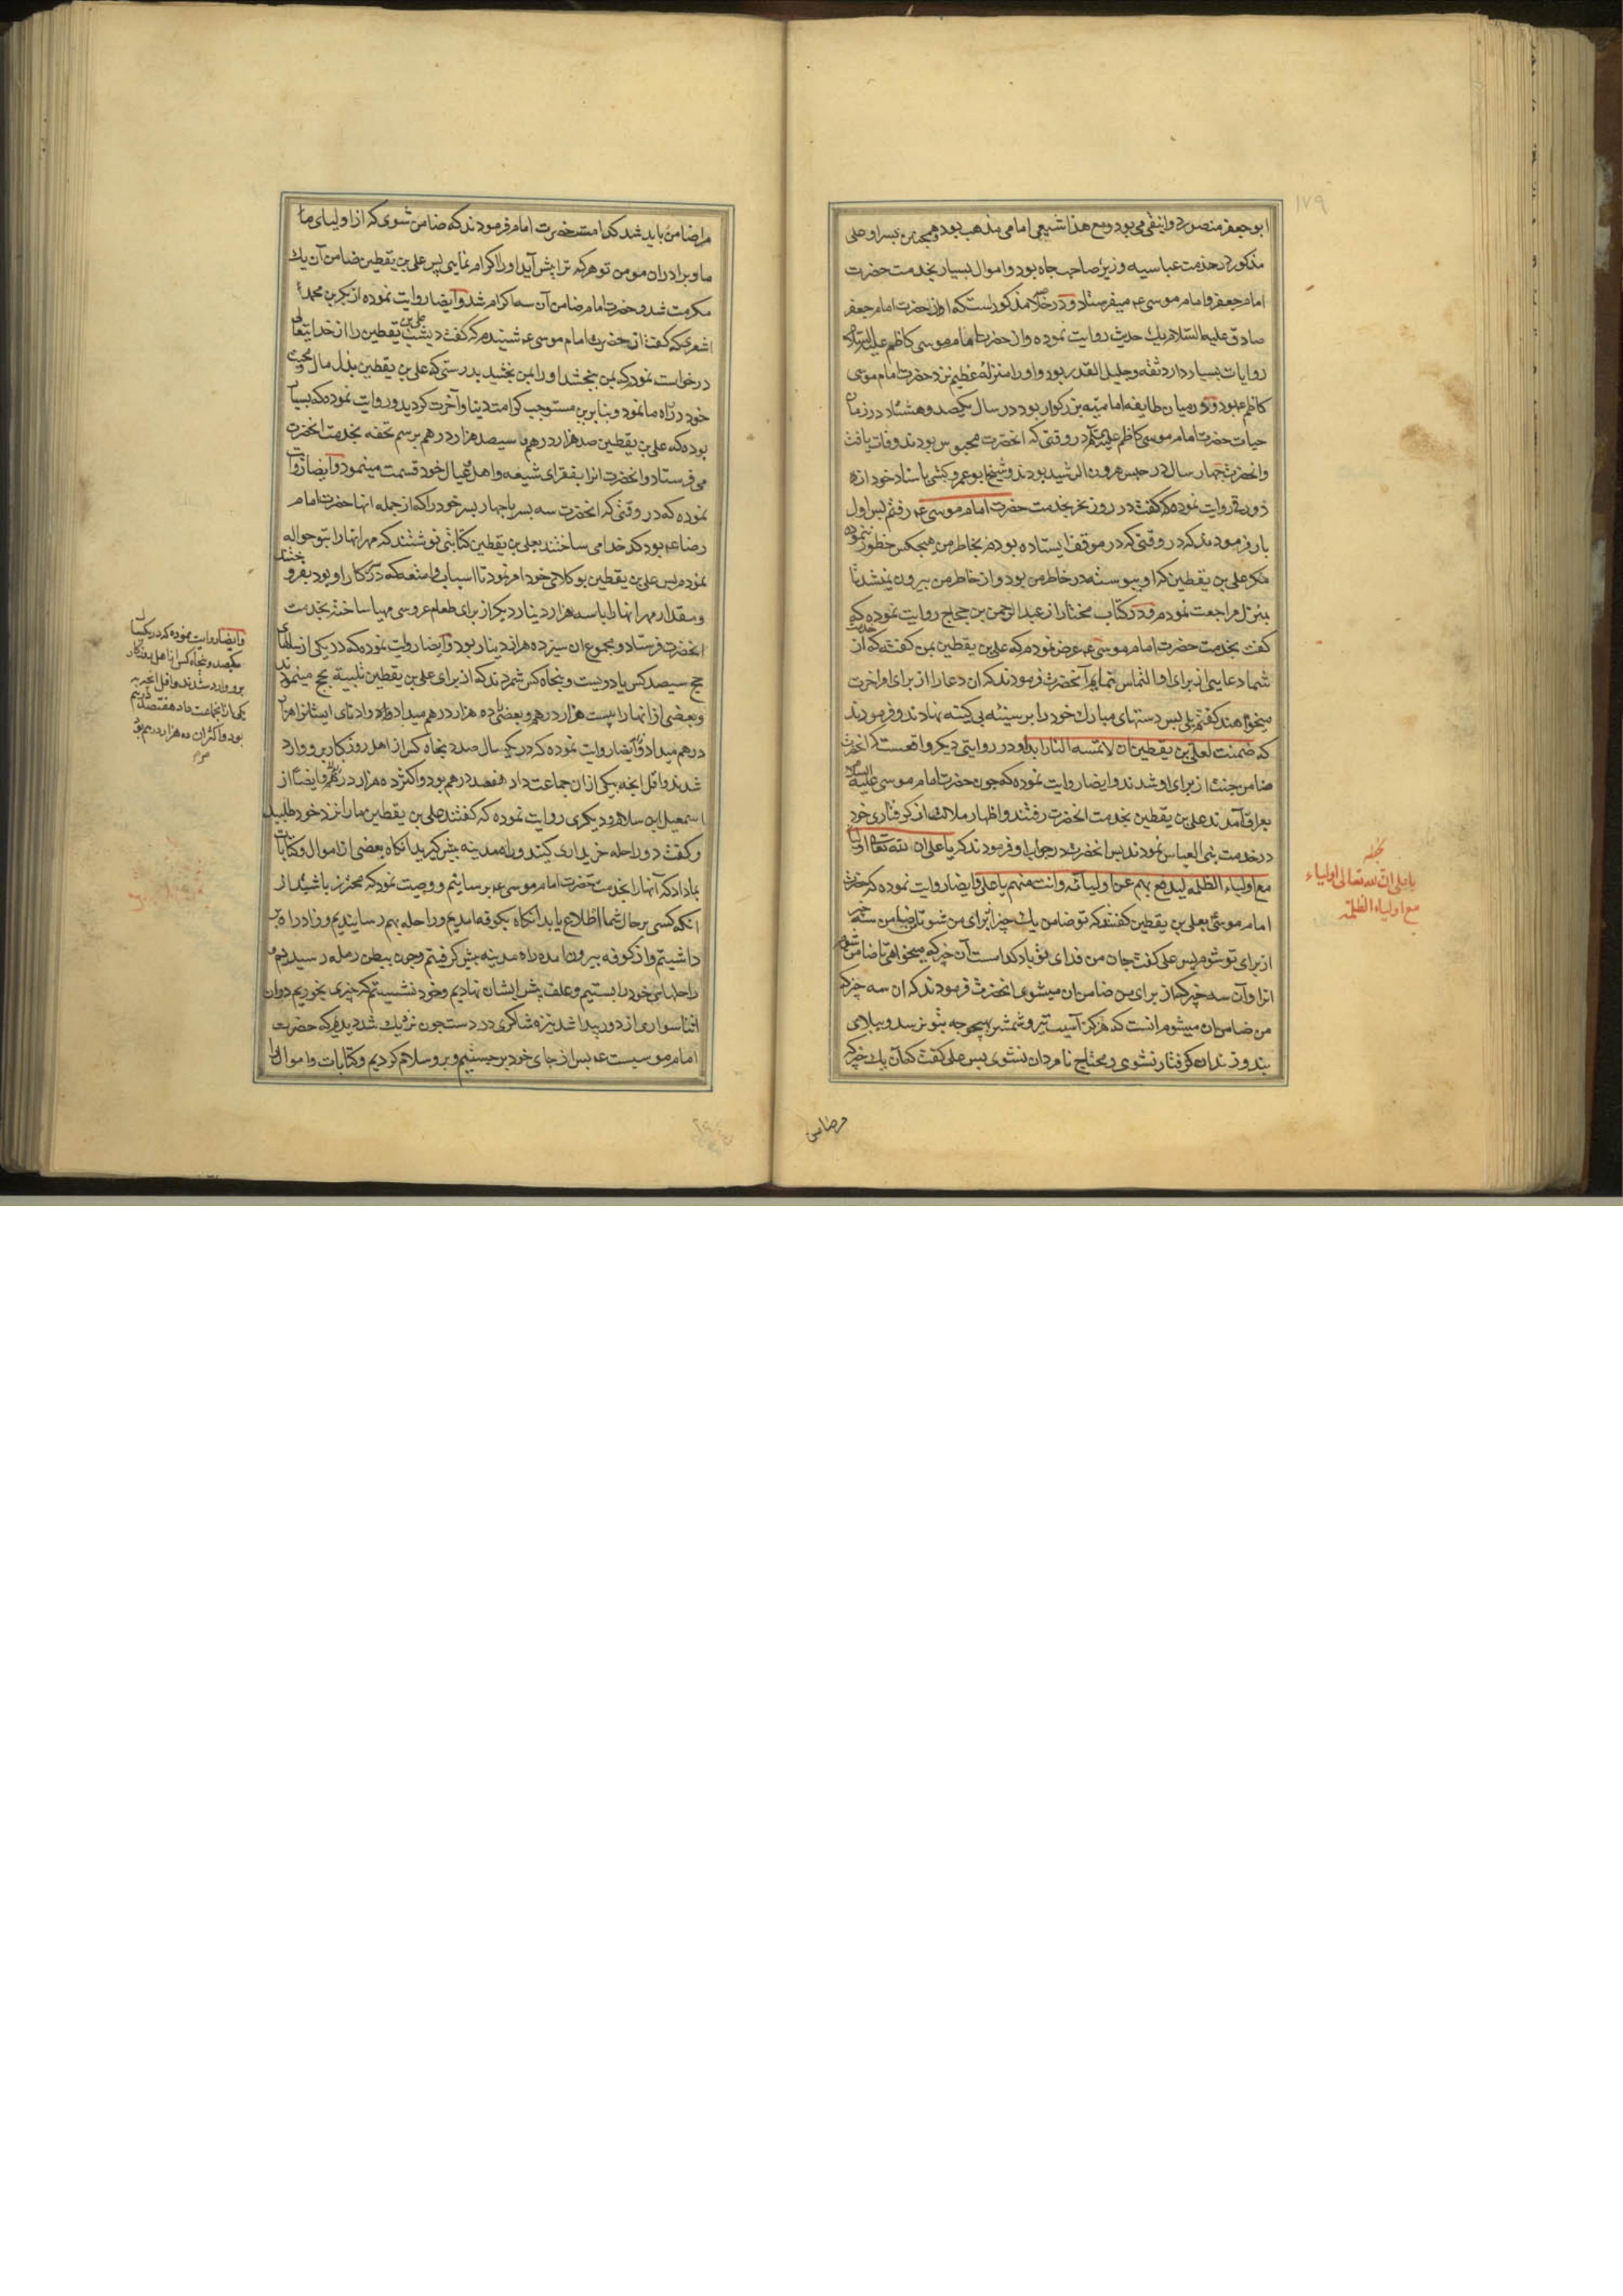 ۱۷۹
ابو جعفر منصور دوانیقی می بود و مع هذا شیعی امامی مذهب بود و همچنین پسر او علی
مذکور در خدمت عباسیه وزیر صاحب جاه بود و اموال بسیار بخدمت حضرت
امام جعفر و امام موسی ع میفرستاد و در خلاصه مذکور است که او از حضرت امام جعفر
صادق علیه السلام یک حدیث روایت نموده و از حضرت امام موسی کاظم علیه السلام
روایات بسیار دارد ثقه و جلیل القدر بود و او را منزلهٔ عظیم نزد حضرت امام موسی
کاظم ع بود و در میان طایفه امامیه بزرکوار بود در سال یکصد و هشتاد در زمان
حیات حضرت امام موسی کاظم علیه السلم در وقتی که انحضرت محبوس بودند وفات یافت
وانحضرت چهار سال در حبس هرون الرشید بودند و شیخ ابو عمرو کشی باسناد خود از داود
زورقی روایت نموده که گفت در روز نحر بخدمت حضرت امام موسی ع رفتم پس اول
بار فرمودند که در وقتی که در موقف ایستاده بودم بخاطر من هیچکس خطور ننموده
مکر علی بن یقطین که او پیوسته در خاطر من بود و از خاطر من بیرون نمیشد تا
بمنزل مراجعت نمودم و در کتاب مختار از عبد الرحمن بن حجاج روایت نموده که
گفت بخدمت حضرت امام موسی ع عرض نمودم که علی بن یقطین بمن گفته که از خدمت
شما دعایی از برای او التماس نمایم آنحضرت فرمودند که ان دعا را از برای او اخرت
میخواهند گفتم بلی پس دستهای مبارک خود را بر سینه بی کینه نهادند و فرمودند
که ضمنت لعلی بن یقطین ان لا تمسه النار ابدا و در روایتی دیکر واقعست که انحضرت
ضامن جنت از برای او شدند و ایضا روایت نموده که چون حضرت امام موسی علیه السلام
بعراق آمدند علی بن یقطین بخدمت انحضرت رفتند و اظهار ملالت از کرفتاری خود
در خدمت بنی العباس نمودند پس انحضرت در جواب او فرمودند که یا علی ان لله تعالی اولیاء
مع اولیاء الظلمه لیدفع بهم عن اولیائه و انت منهم یا علی و ایضا روایت نموده که حضرت
امام موسی ع بعلی بن یقطین گفتند که تو ضامن یک چیز از برای من شو تا من ضامن سه چیز
از برای تو شوم پس علی گفت جان من فدای تو باد کدامست آن چیز که میخواهی تا ضامن شوم
انرا و آن سه چیز که از برای من ضامن ان میشوی انحضرت فرمودند که ان سه چیز که
من ضامن ان میشوم انست که هرکز آسیب تیر و شمشیر بهیچ وجه بتو نرسد و ببلای
بند و زندان کرفتار نشوی و محتاج نامردان نشوی پس علی گفت که آن یک چیز که
مرا ضامن
یا علی ان لله تعالی اولیاء
مع اولیاء الظلمة
مرا ضامن باید شد کدامست حضرت امام فرمودند که ضامن شوی که از اولیای ما
ما و برادران مومن تو هر که ترا پیش آید او را اکرام نمایی پس علی بن یقطین ضامن آن یک
مکرمت شد و حضرت امام ضامن آن سه اکرام شد و ایضا روایت نموده از بکر بن محمد
اشعری که گفت از حضرت امام موسی ع شنیدم که گفت دیشب علی بن یقطین را از خدایتعالی
درخواست نمودم که بمن بخشد او را بمن بخشید بدرستی که علی بن یقطین بذل مال و محبت
خود در راه ما نمود و بنا برین مستوجب کرامت دنیا و آخرت کردید و روایت نموده که بسیار
بوده که علی بن یقطین صد هزار درهم یا سیصد هزار درهم برسم تحفه بخدمت انحضرت
می فرستاد و انحضرت انرا بفقرای شیعه و اهل و عیال خود قسمت مینمود و ایضا روایت
نموده که در وقتی که انحضرت سه پسر یا چهار پسر خود را که از جمله انها حضرت امام
رضا ع بود کدخدا می ساختند بعلی بن یقطین کتابتی نوشتند که مهر انها را بتو حواله
نمودم پس علی بن یقطین بوکلای خود امر نمود تا اسباب و امتعه که در سرکار او بود بفروختند
و مقدار مهر انها را با سه هزار دینار دیکر از برای طعام عروسی مهیا ساخته بخدمت
انحضرت فرستاد و مجموع ان سیزده هزار دینار بود و ایضا روایت نموده که در یکی از سالهای
حج سیصد کس یا دویست و پنجاه کس شمردند که از برای علی بن یقطین تلبیه حج مینمودند
و بعضی از انها را بیست هزار درهم و بعضی را ده هزار درهم میداد و ادنای ایشانرا هزار
درهم میداد و ایضا روایت نموده که در یک سال صد و پنجاه کس از اهل روزکار برو وارد
شدند و اقل انچه بیکی از ان جماعت داد هفصد درهم بود و اکثر ده هزار درهم و ایضا از
اسمعیل ابن سلام و دیکری روایت نموده که گفتند علی بن یقطین ما را نزد خود طلبید
و گفت دو راحله خریداری کنید و راه مدینه پیش کیرید انکاه بعضی از اموال و کتابات
بما داد که آنها را بخدمت حضرت امام موسی ع برسانیم و وصیت نمود که محترز باشید از
انکه کسی بر حال شما اطلاع یابد انکاه بکوفه امدیم و راحله بهم رسانیدیم و زاد راه بر
داشتیم و از کوفه بیرون امده راه مدینه پیش کرفتیم و چون ببطن رمله رسیدیم
راحلهای خود را بستیم و علف پیش ایشان نهادیم و خود نشستیم که چیزی بخوریم در ان
اثنا سواری از دور پیدا شد نیزه شاکری در دست چون نزدیک شد دیدیم که حضرت
امام موسیست ع پس از جای خود بر جستیم و برو سلام کردیم و کتابات و اموال را
وایضا روایت نموده که در یکسال
یکصد و پنجاه کس از اهل روزکار
برو وارد شدند و اقل انچه به
یکی از انجماعت داد هفتصد درهم
بود و اکثر ان ده هزار درهم بود